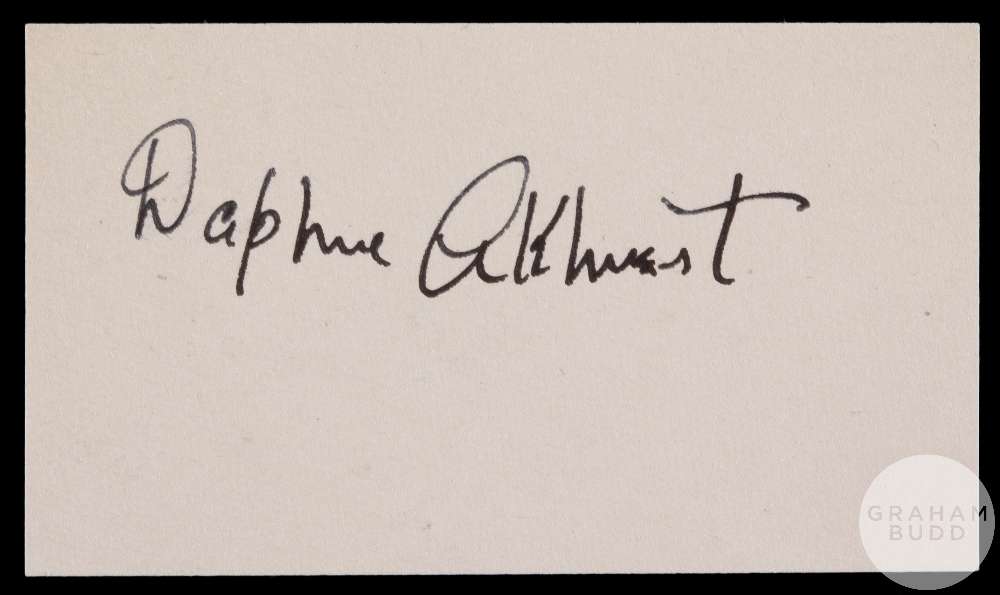 Daphne Akhurst
GRAHAM
BUDD